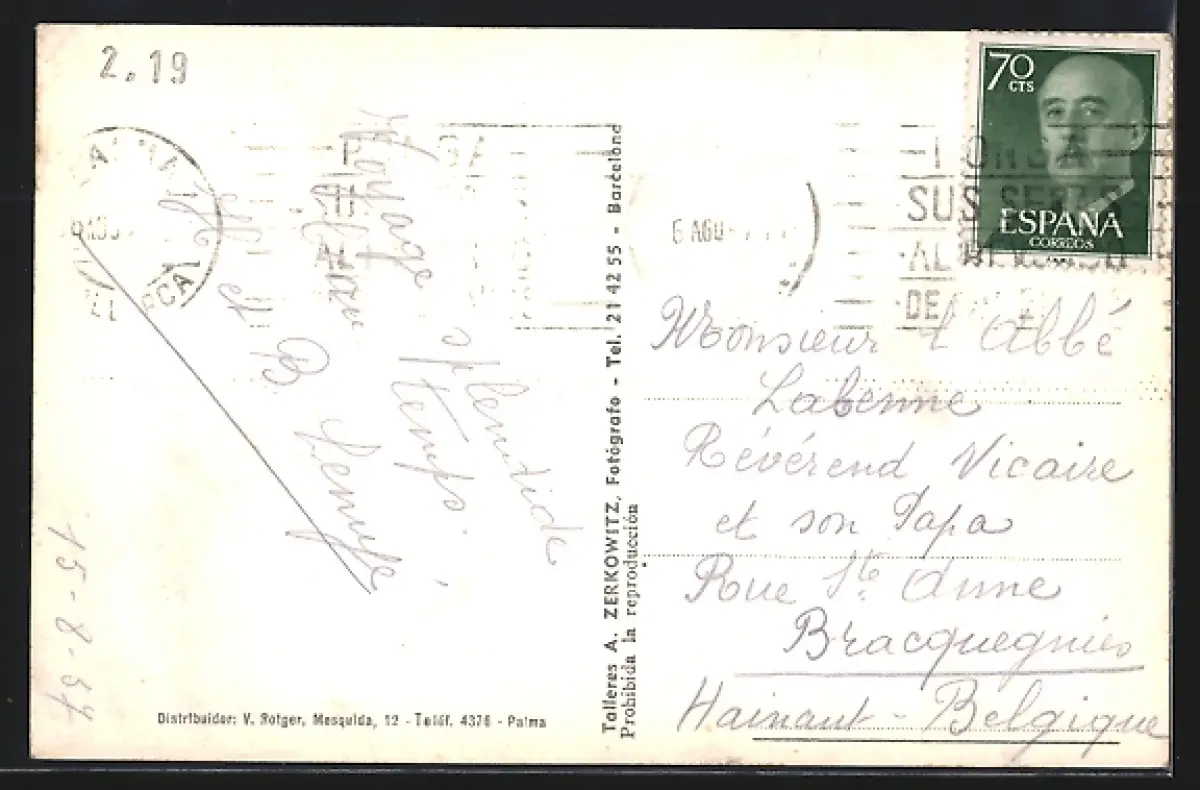 2.19
70
CTS
ESPAÑA
CORREOS
6 AGO
SUS SE
AL
DE
Voyage splendide
temps.
et B
15-8-57
Distribuidor: V. Rotger, Mesquida, 12 - Teléf. 4376 - Palma
Talleres A. ZERKOWITZ, Fotógrafo - Tel. 21 42 55 - Barcelona
Prohibida la reproducción
Monsieur l'Abbé
Labenne
Révérend Vicaire
et son Papa
Rue Ste. Anne
Bracquegnies
Hainaut - Belgique